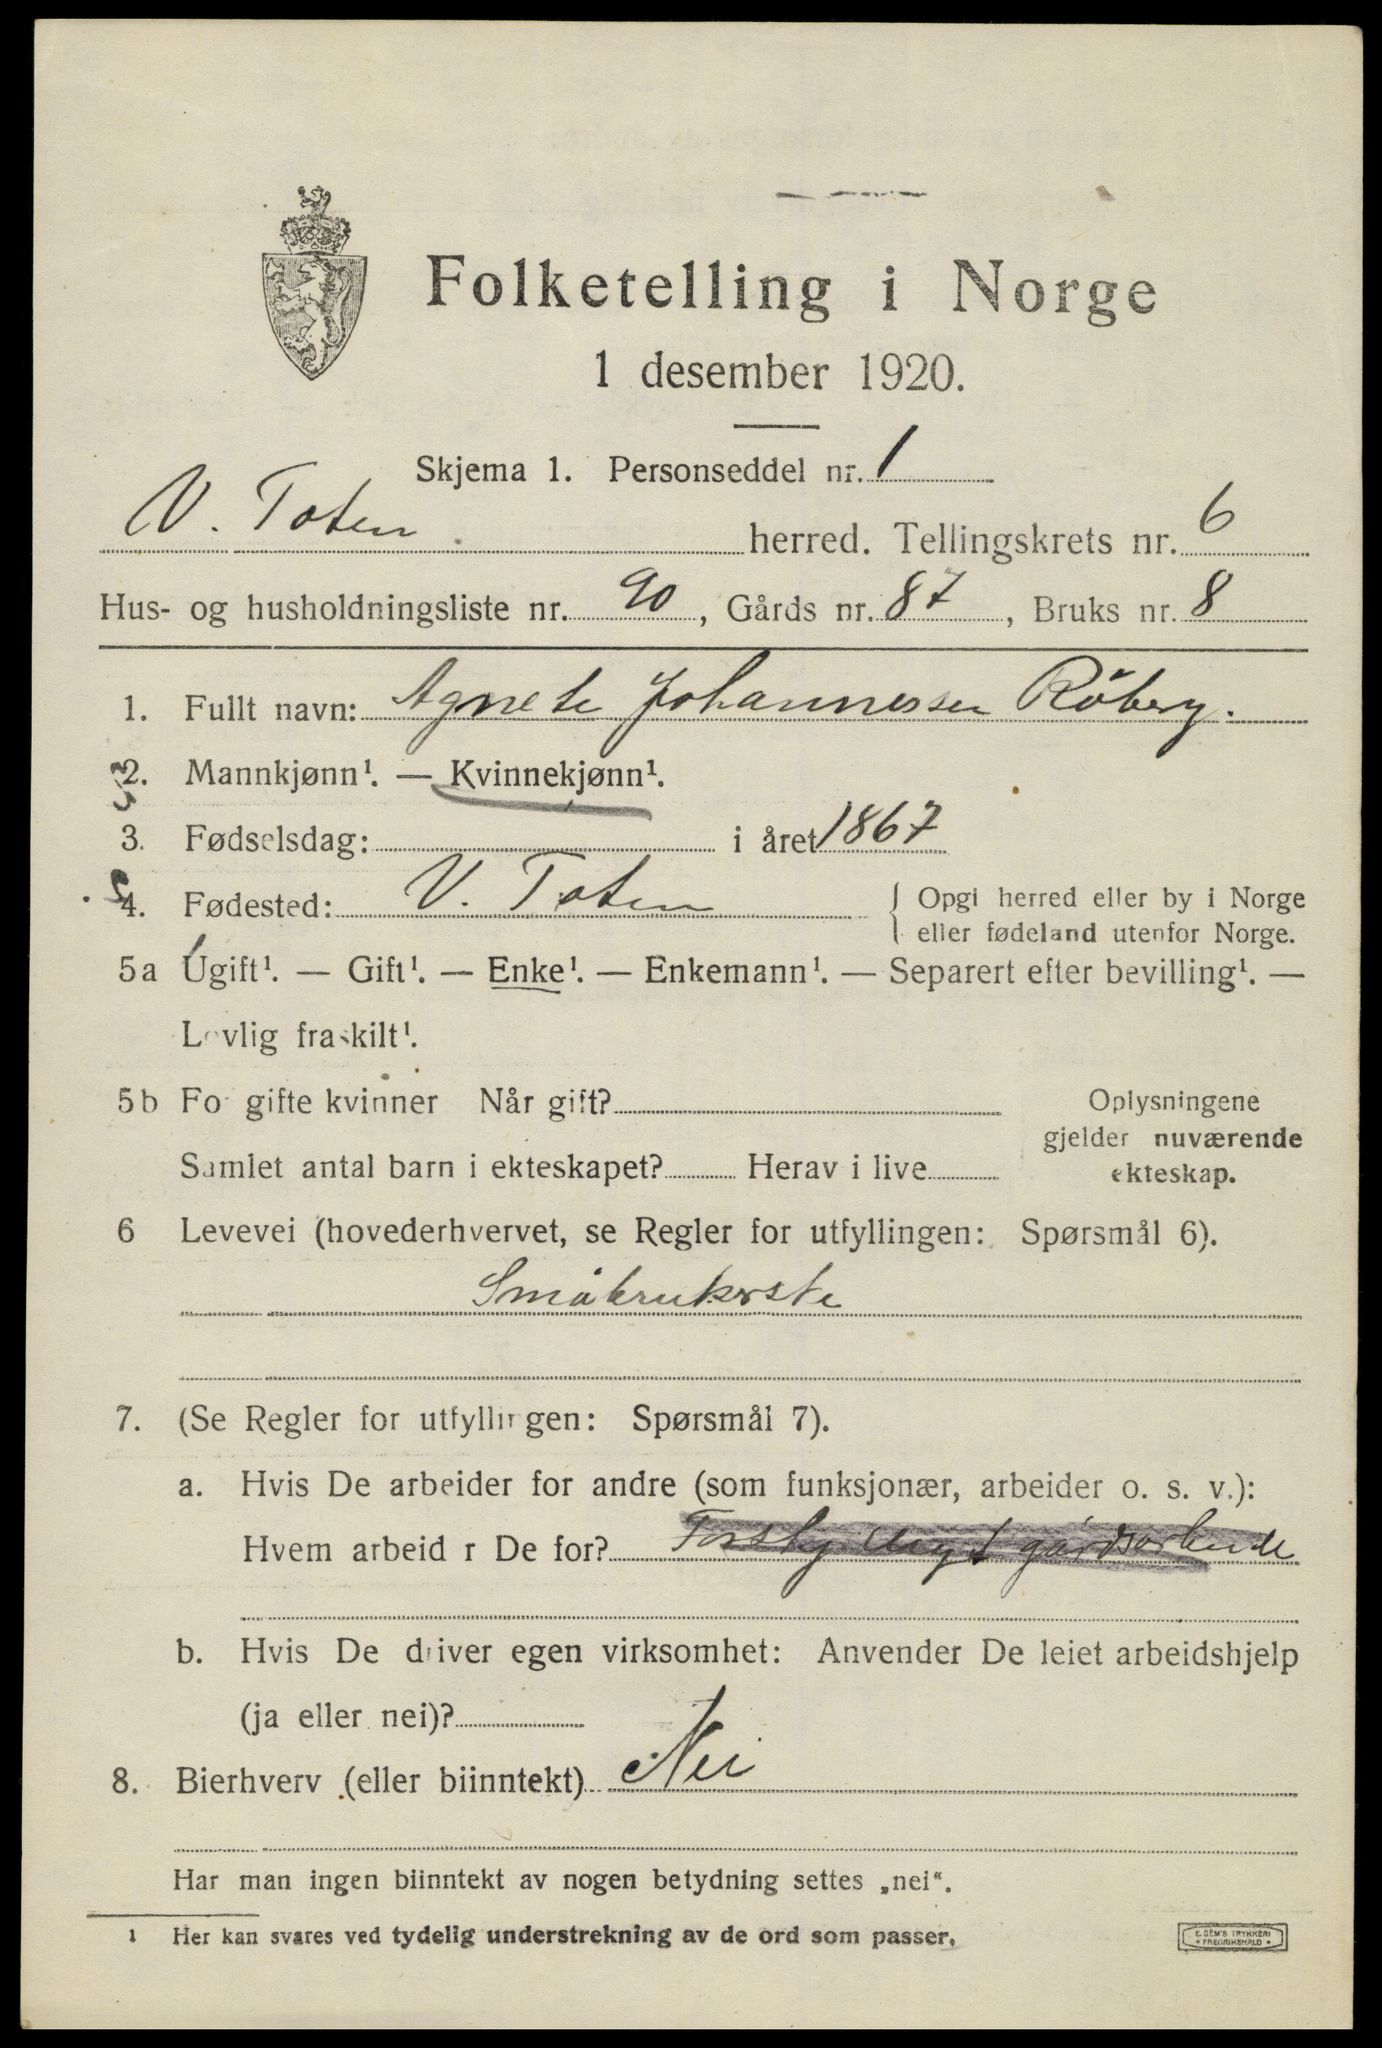 Folketelling i Norge
1 desember 1920.
Skjema 1. Personseddel nr. 1
V. Toten herred. Tellingskrets nr. 6
Hus- og husholdningsliste nr. 90, Gårds nr. 87, Bruks nr. 8
1. Fullt navn: Agnete Johannessen Röberg.
2. Mannkjønn¹. — Kvinnekjønn¹.
3. Fødselsdag: i året 1867
4. Fødested: V. Toten { Opgi herred eller by i Norge
eller fødeland utenfor Norge.
5a Ugift¹. — Gift¹. — Enke¹. — Enkemann¹. — Separert efter bevilling¹. —
Lovlig fraskilt¹.
5b For gifte kvinner Når gift? Oplysningene
gjelder nuværende
Samlet antal barn i ekteskapet? Herav i live ekteskap.
6 Levevei (hovederhvervet, se Regler for utfyllingen: Spørsmål 6).
Småbrukerske
7. (Se Regler for utfyllingen: Spørsmål 7).
a. Hvis De arbeider for andre (som funksjonær, arbeider o. s. v.):
Hvem arbeid r De for? gårdsarbeide
b. Hvis De driver egen virksomhet: Anvender De leiet arbeidshjelp
(ja eller nei)?
8. Bierhverv (eller biinntekt) Nei
Har man ingen biinntekt av nogen betydning settes „nei“.
1 Her kan svares ved tydelig understrekning av de ord som passer.
E. SEM'S TRYKKERI
FREDRIKSHALD